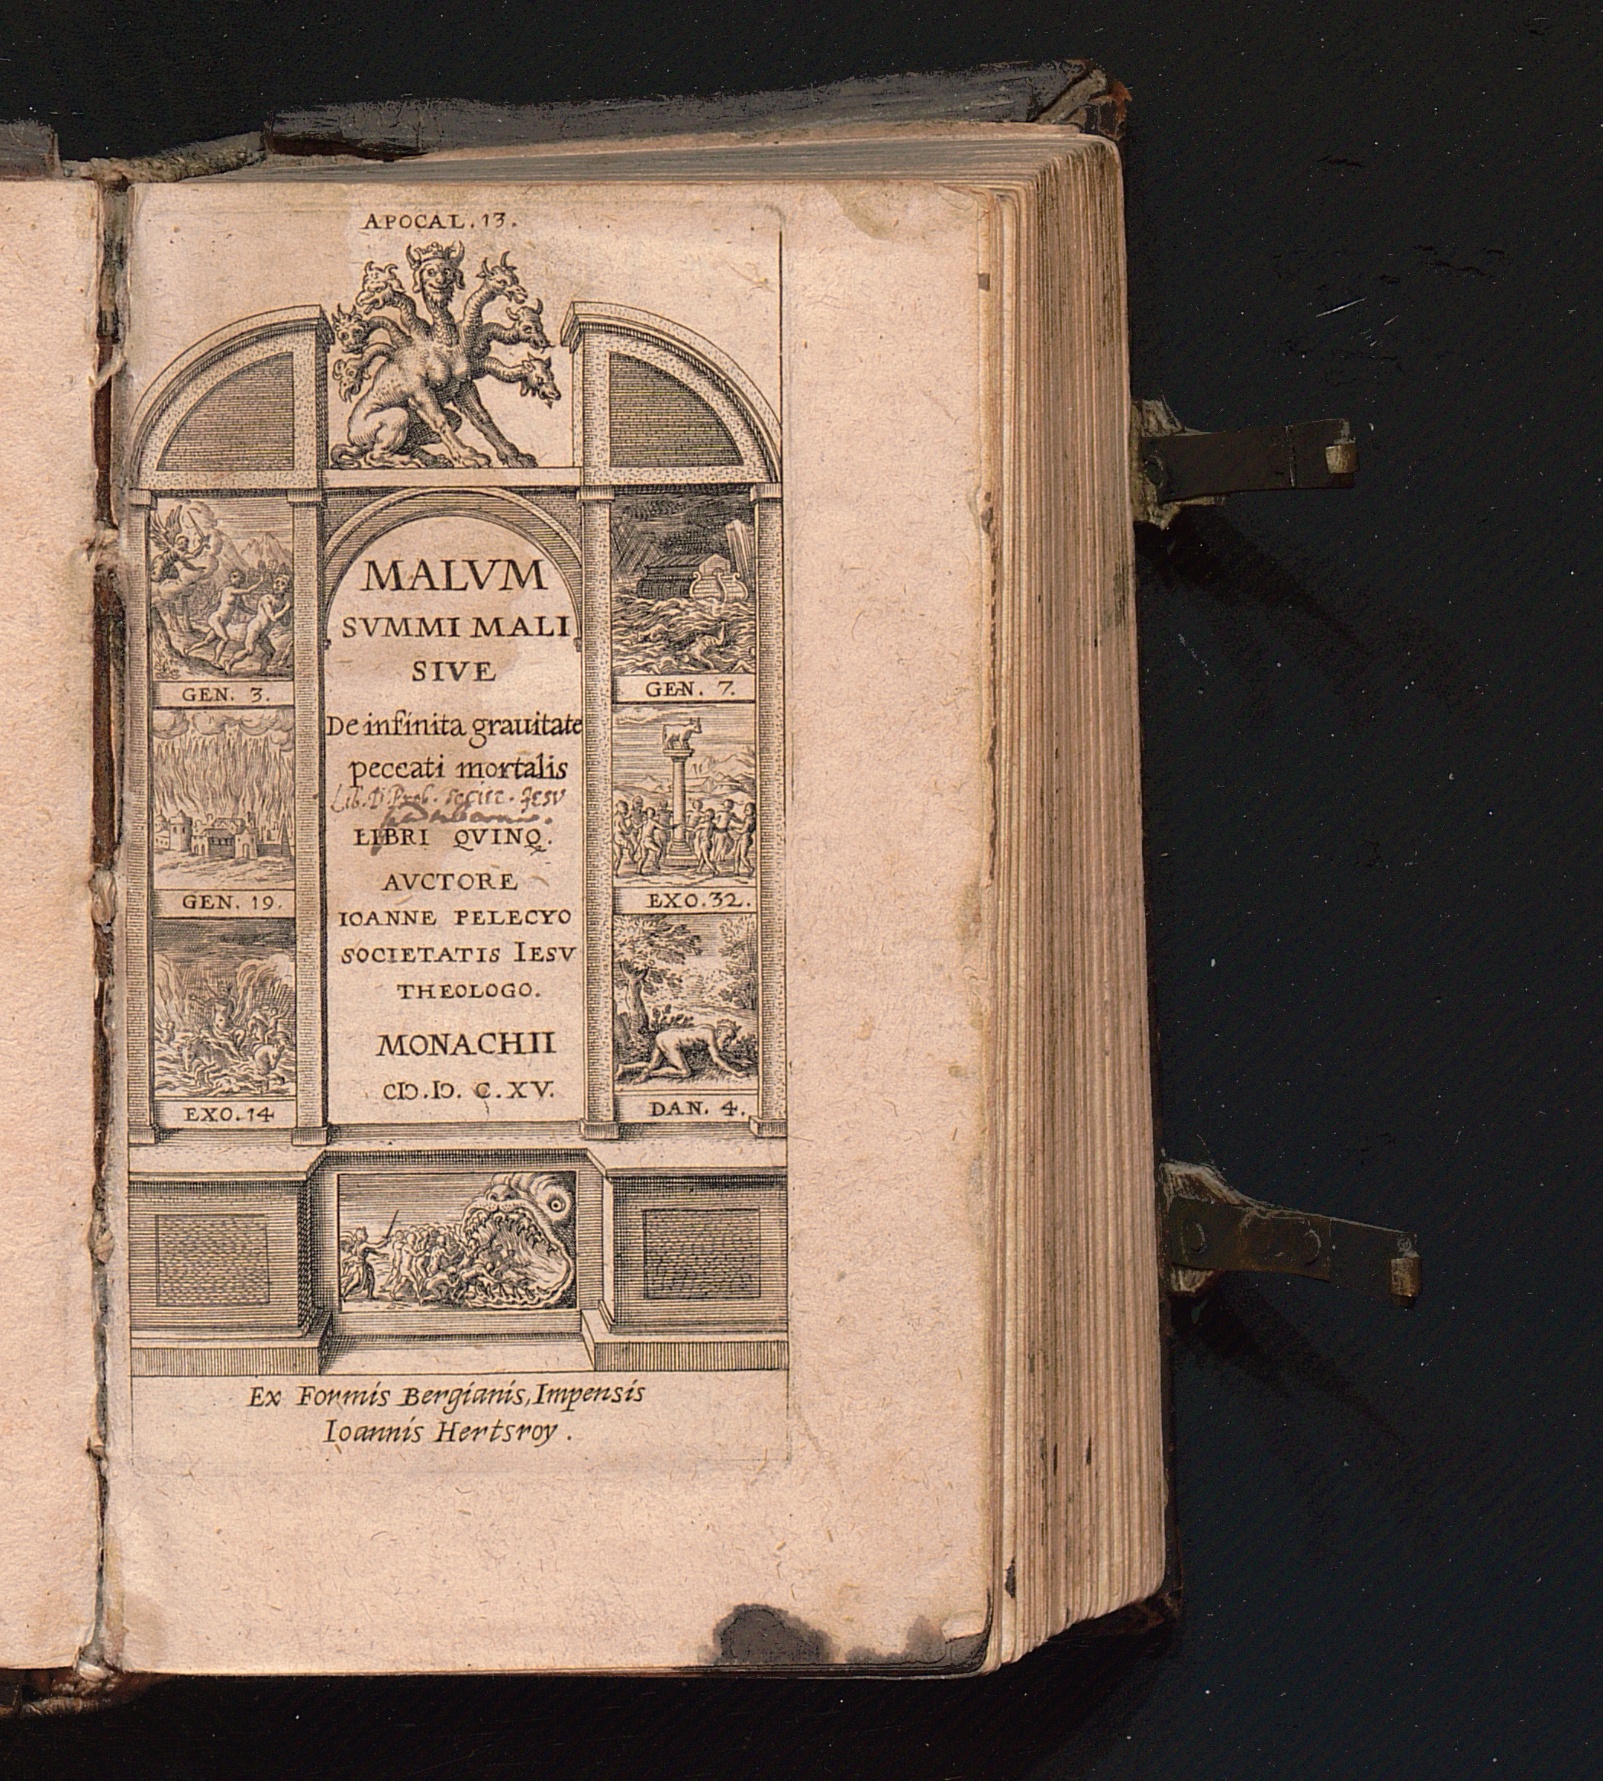 APOCAL. 13.
MALVM
SVMMI MALI
SIVE
De infinita grauitate
peccati mortalis
Lib. D. Prob. Societ. Jesv
LIBRI QVINQ.
AVCTORE
IOANNE PELECYO
SOCIETATIS IESV
THEOLOGO.
MONACHII
CIↃ.IↃ. C.XV.
GEN. 3.
GEN. 7.
GEN. 19.
EXO. 32.
EXO. 14
DAN. 4.
Ex Formis Bergianis, Impensis
Ioannis Hertsroy.